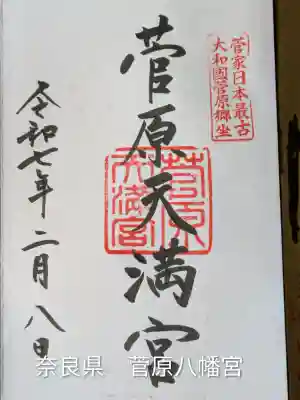 菅家日本最古
大和國菅原郷坐
菅原天満宮
菅原
天満宮
令和七年二月八日
奈良県 菅原八幡宮